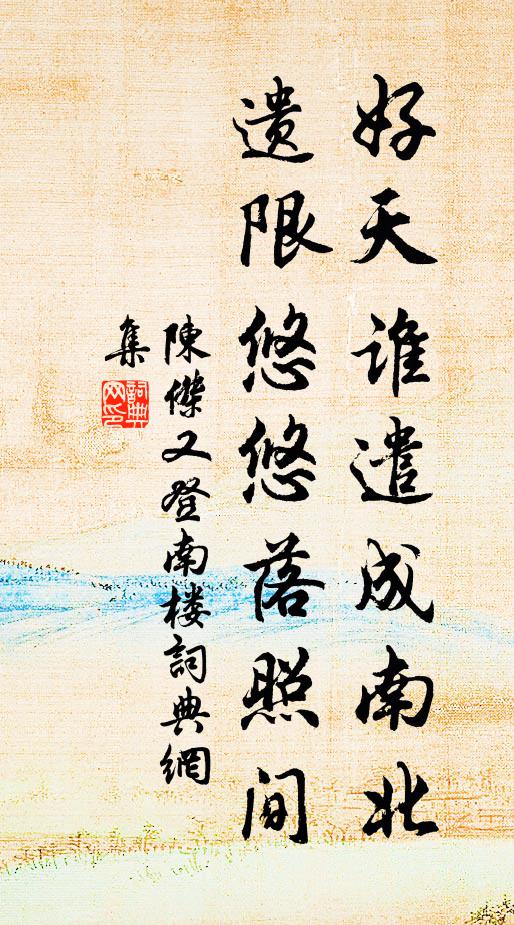 好天谁遣成南北
遗限悠悠落照间
陳傑又登南楼詞典網
集
詞典
网印